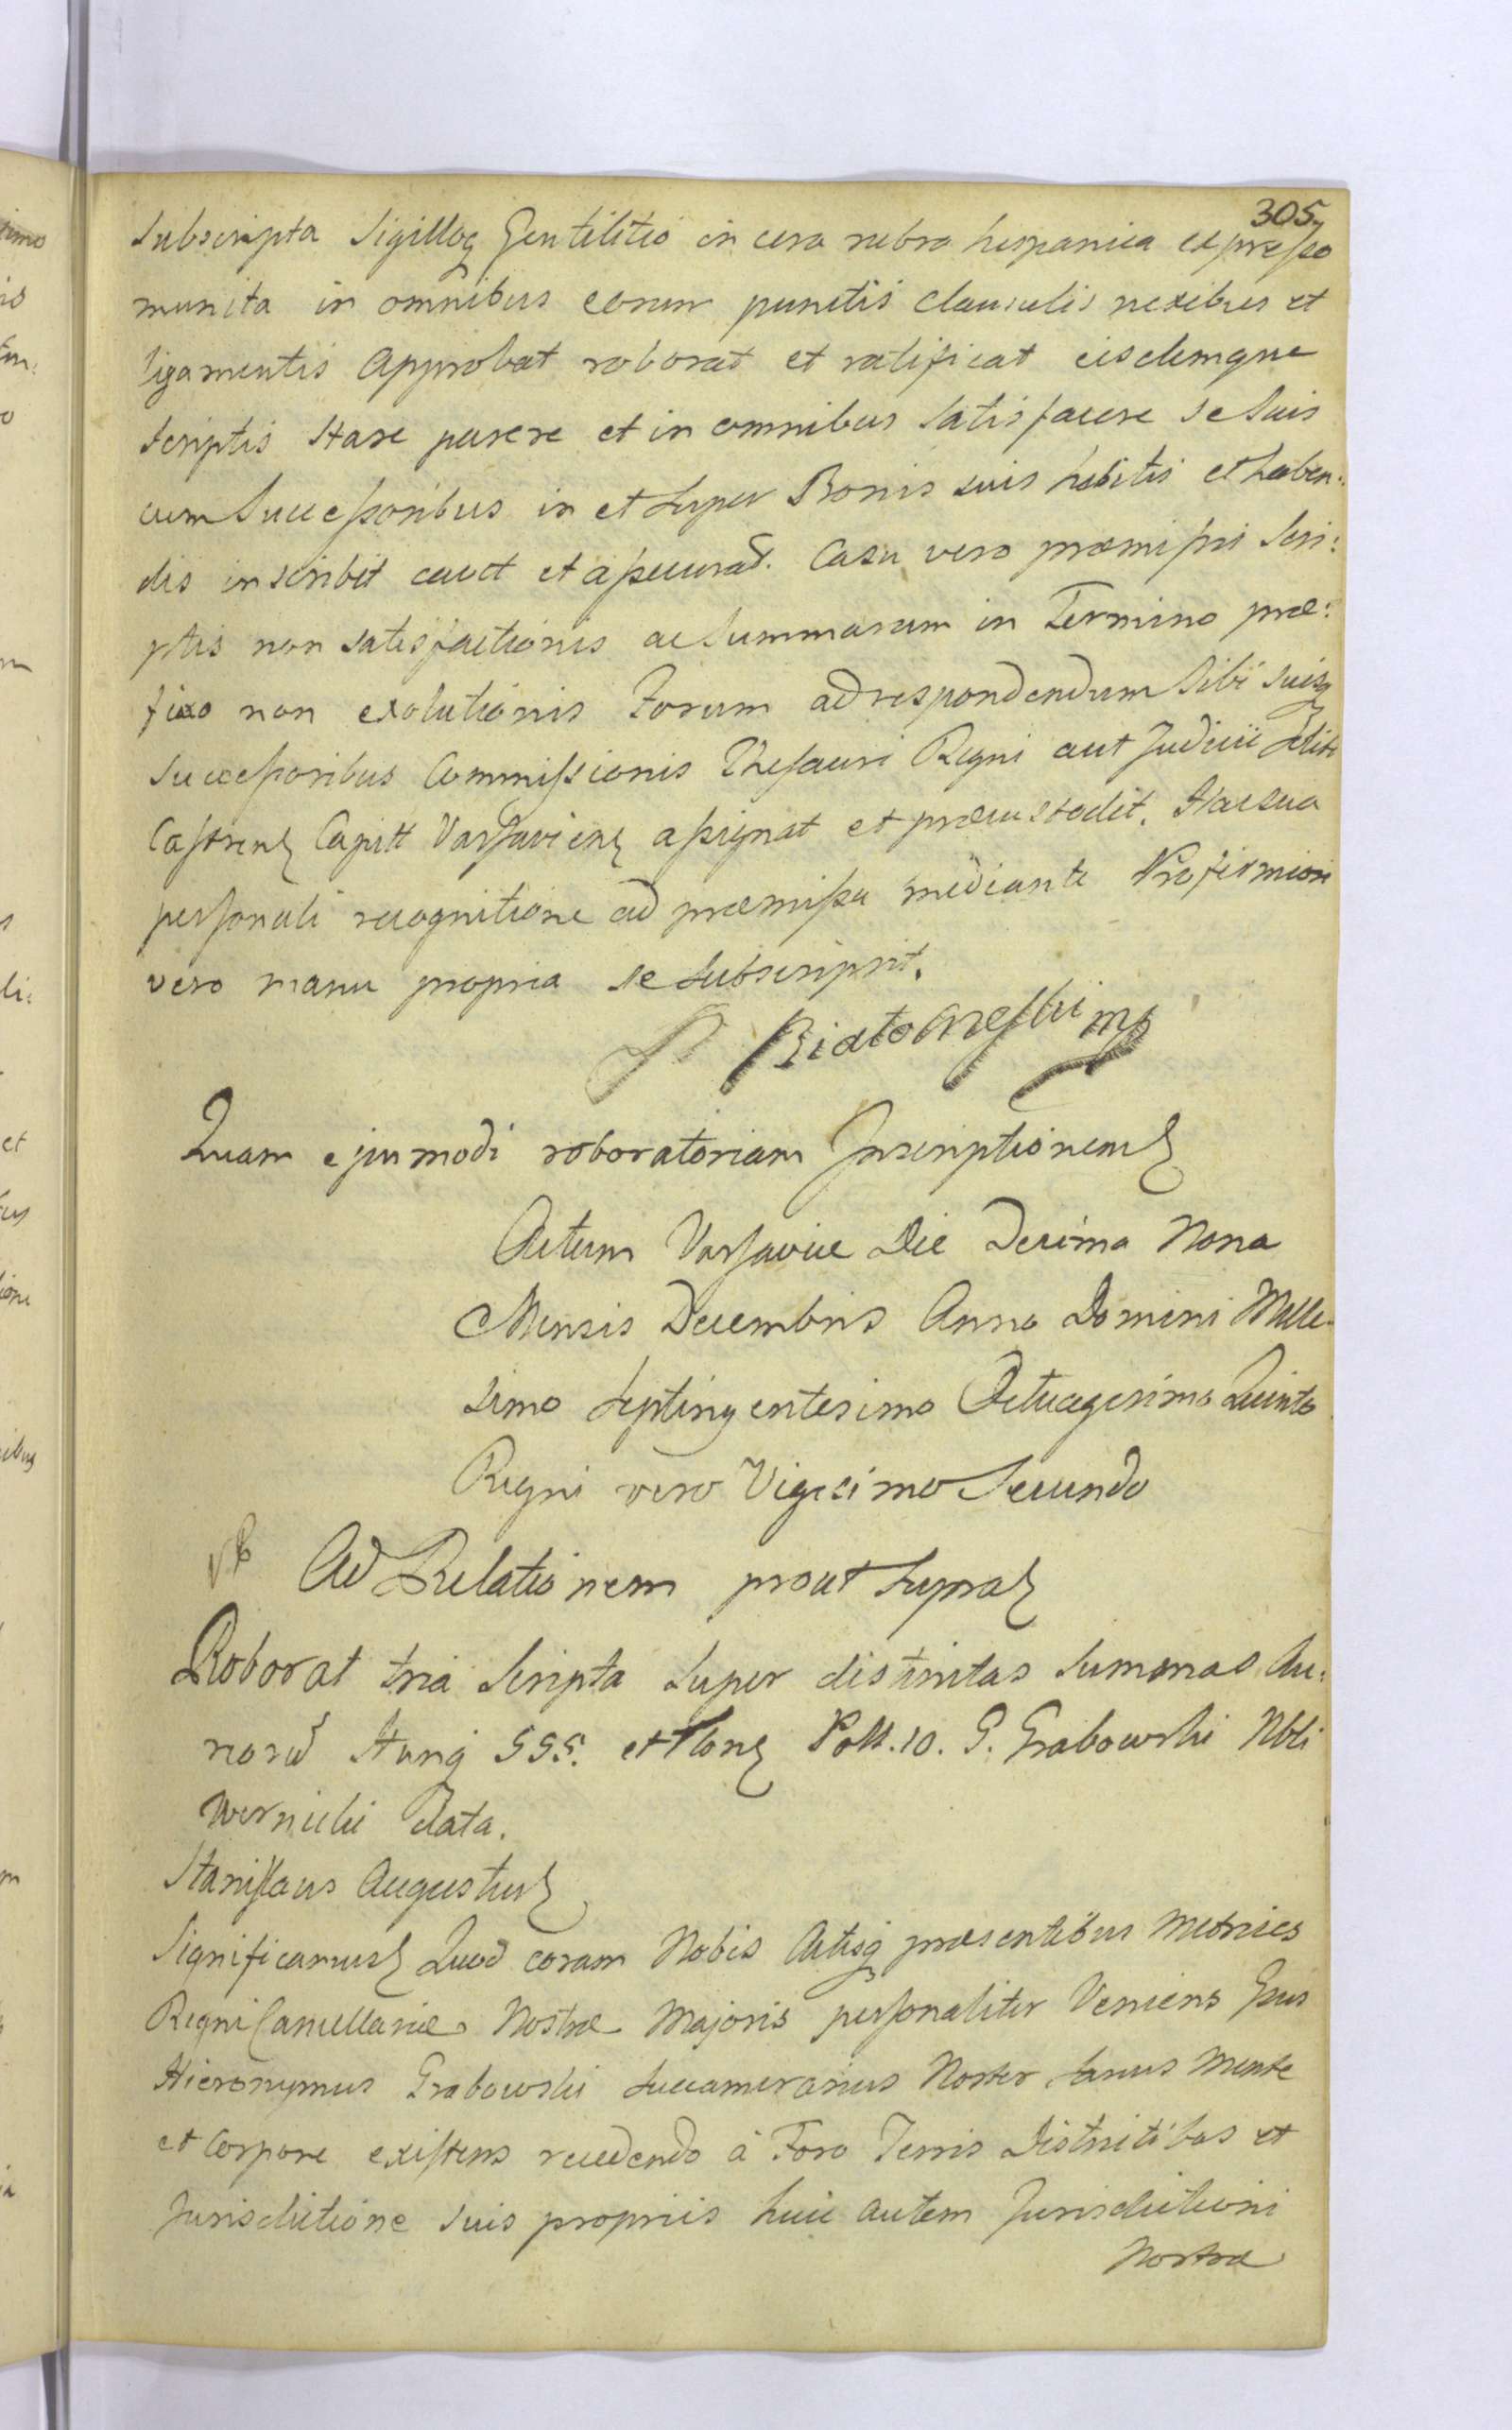 305
Subscripta Sigilloq Gentilitio in cera rubra hispanica expresso
munita in omnibus eorum punctis clausulis nexibus et
ligamentis approbat roborat et ratificat eisdemque
Scriptis stare parere et in omnibus Satisfacere se Suis
cum Successoribus in et Super Bonis suis habitis et haben:
dis inscribit cavet et assecurat. Casu vero præmissis Scri:
ptis non satisfactionis ac Summarum in Termino præ:
fixo non exolutionis Forum ad respondendum Sibi Suisq
Successoribus Commissionis Thesauri Regni aut Judicii
Castren Capitt Varsavien assignat et præcustodit. Hac sua
personali recognitione ad præmissa mediante Pro firmiori
vero manu propria se Subscripsit.
mp
Quam ejusmodi roboratoriam Inscriptionem
Actum Varsaviæ Die Decima Nona
Mensis Decembris Anno Domini Mille-
simo Septingentesimo Octuagesimo Quinto
Regni vero Vigesimo Secundo
Ad Relationem prout Supra
Roborat tria Scripta Super distinctas Summas Au:
reord Hung 555. et Flon Poll. 10. G. Grabowski Nbli
Wernicki Data.
Stanislaus Augustus
Significamus Quod coram Nobis Actisq præsentibus Metrices
Regni Cancellariæ Nostræ Majoris personaliter Veniens Gsus
Hieronymus Grabowski Succamerarius Noster Sanus Mente
et Corpore existens recedendo à Foro Terris Districtibus et
Jurisdictione suis propriis huic autem Jurisdictioni
Nostræ